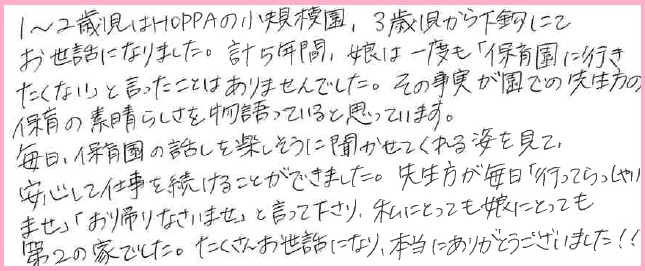 1～2歳児はHOPPAの小規模園、3歳児から下鈎にて
お世話になりました。計5年間、娘は一度も「保育園に行き
たくない」と言ったことはありませんでした。その事実が園での先生方の
保育の素晴らしさを物語っていると思っています。
毎日、保育園の話しを楽しそうに聞かせてくれる姿を見て、
安心して仕事を続けることができました。先生方が毎日「行ってらっしゃい
ませ」「お帰りなさいませ」と言って下さり、私にとっても娘にとっても
第2の家でした。たくさんお世話になり、本当にありがとうございました!!